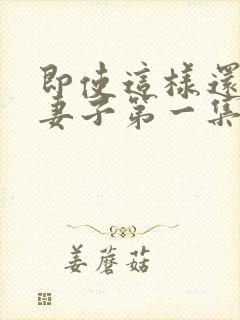 即使這樣還
妻子第一集
姜蘑菇